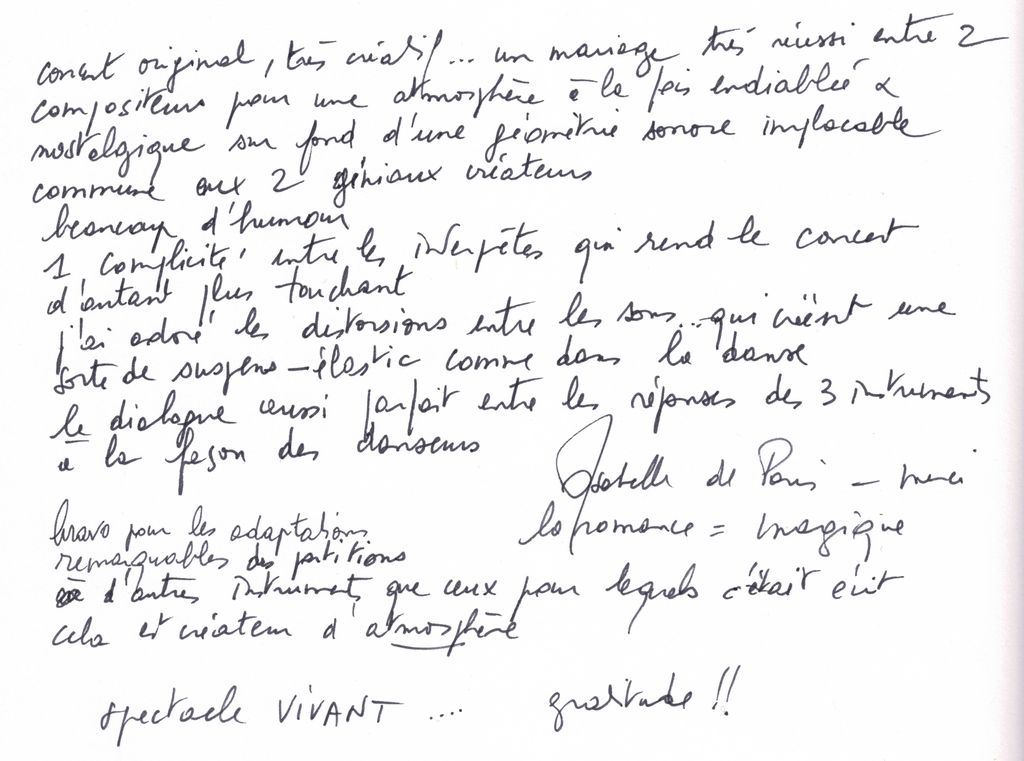 concert original, très créatif... un mariage très réussi entre 2
compositeurs pour une atmosphère à la fois endiablée &
nostalgique sur fond d'une géométrie sonore implacable
commune aux 2 géniaux créateurs
beaucoup d'humour
1 complicité entre les interprêtes qui rend le concert
d'autant plus touchant
j'ai adoré les distorsions entre les sons... qui créent une
sorte de suspens-élastic comme dans la danse
le dialogue aussi parfait entre les réponses des 3 instruments
à la façon des danseurs
Isabelle de Paris - merci
la romance = magique
bravo pour les adaptations
remarquables des partitions
à d'autres instruments que ceux pour lequels c'était écrit
cela est créateur d'atmosphère
spectacle VIVANT .... gratitude !!